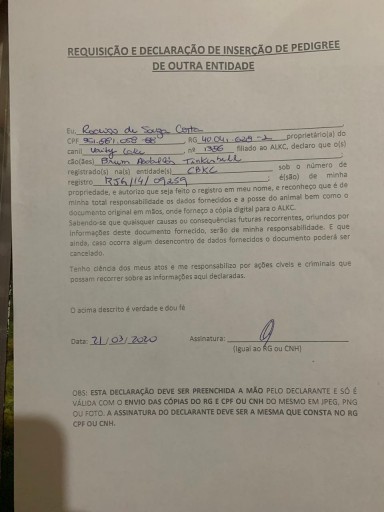 REQUISIÇÃO E DECLARAÇÃO DE INSERÇÃO DE PEDIGREE
DE OUTRA ENTIDADE
Eu, de Costa
CPF , RG proprietário(a) do
canil , nº 1356 filiado ao ALKC, declaro que o(s)
cão(ães)
registrado(s) na(s) entidade(s) CBKC sob o número de
registro RJG/14/09259 ; é(são) de minha
propriedade, e autorizo que seja feito o registro em meu nome, e reconheço que é de
minha total responsabilidade os dados fornecidos e a posse do animal bem como o
documento original em mãos, onde forneço a cópia digital para o ALKC.
Sabendo-se que quaisquer causas ou consequências futuras recorrentes, oriundos por
informações deste documento fornecido, serão de minha responsabilidade. E que
ainda, caso ocorra algum desencontro de dados fornecidos o documento poderá ser
cancelado.
Tenho ciência dos meus atos e me responsabilizo por ações cíveis e criminais que
possam recorrer sobre as informações aqui declaradas.
O acima descrito é verdade e dou fé
Data: 21/03/2020 Assinatura:
(Igual ao RG ou CNH)
OBS: ESTA DECLARAÇÃO DEVE SER PREENCHIDA A MÃO PELO DECLARANTE E SÓ É
VÁLIDA COM O ENVIO DAS CÓPIAS DO RG E CPF OU CNH DO MESMO EM JPEG, PNG
OU FOTO. A ASSINATURA DO DECLARANTE DEVE SER A MESMA QUE CONSTA NO RG
CPF OU CNH.